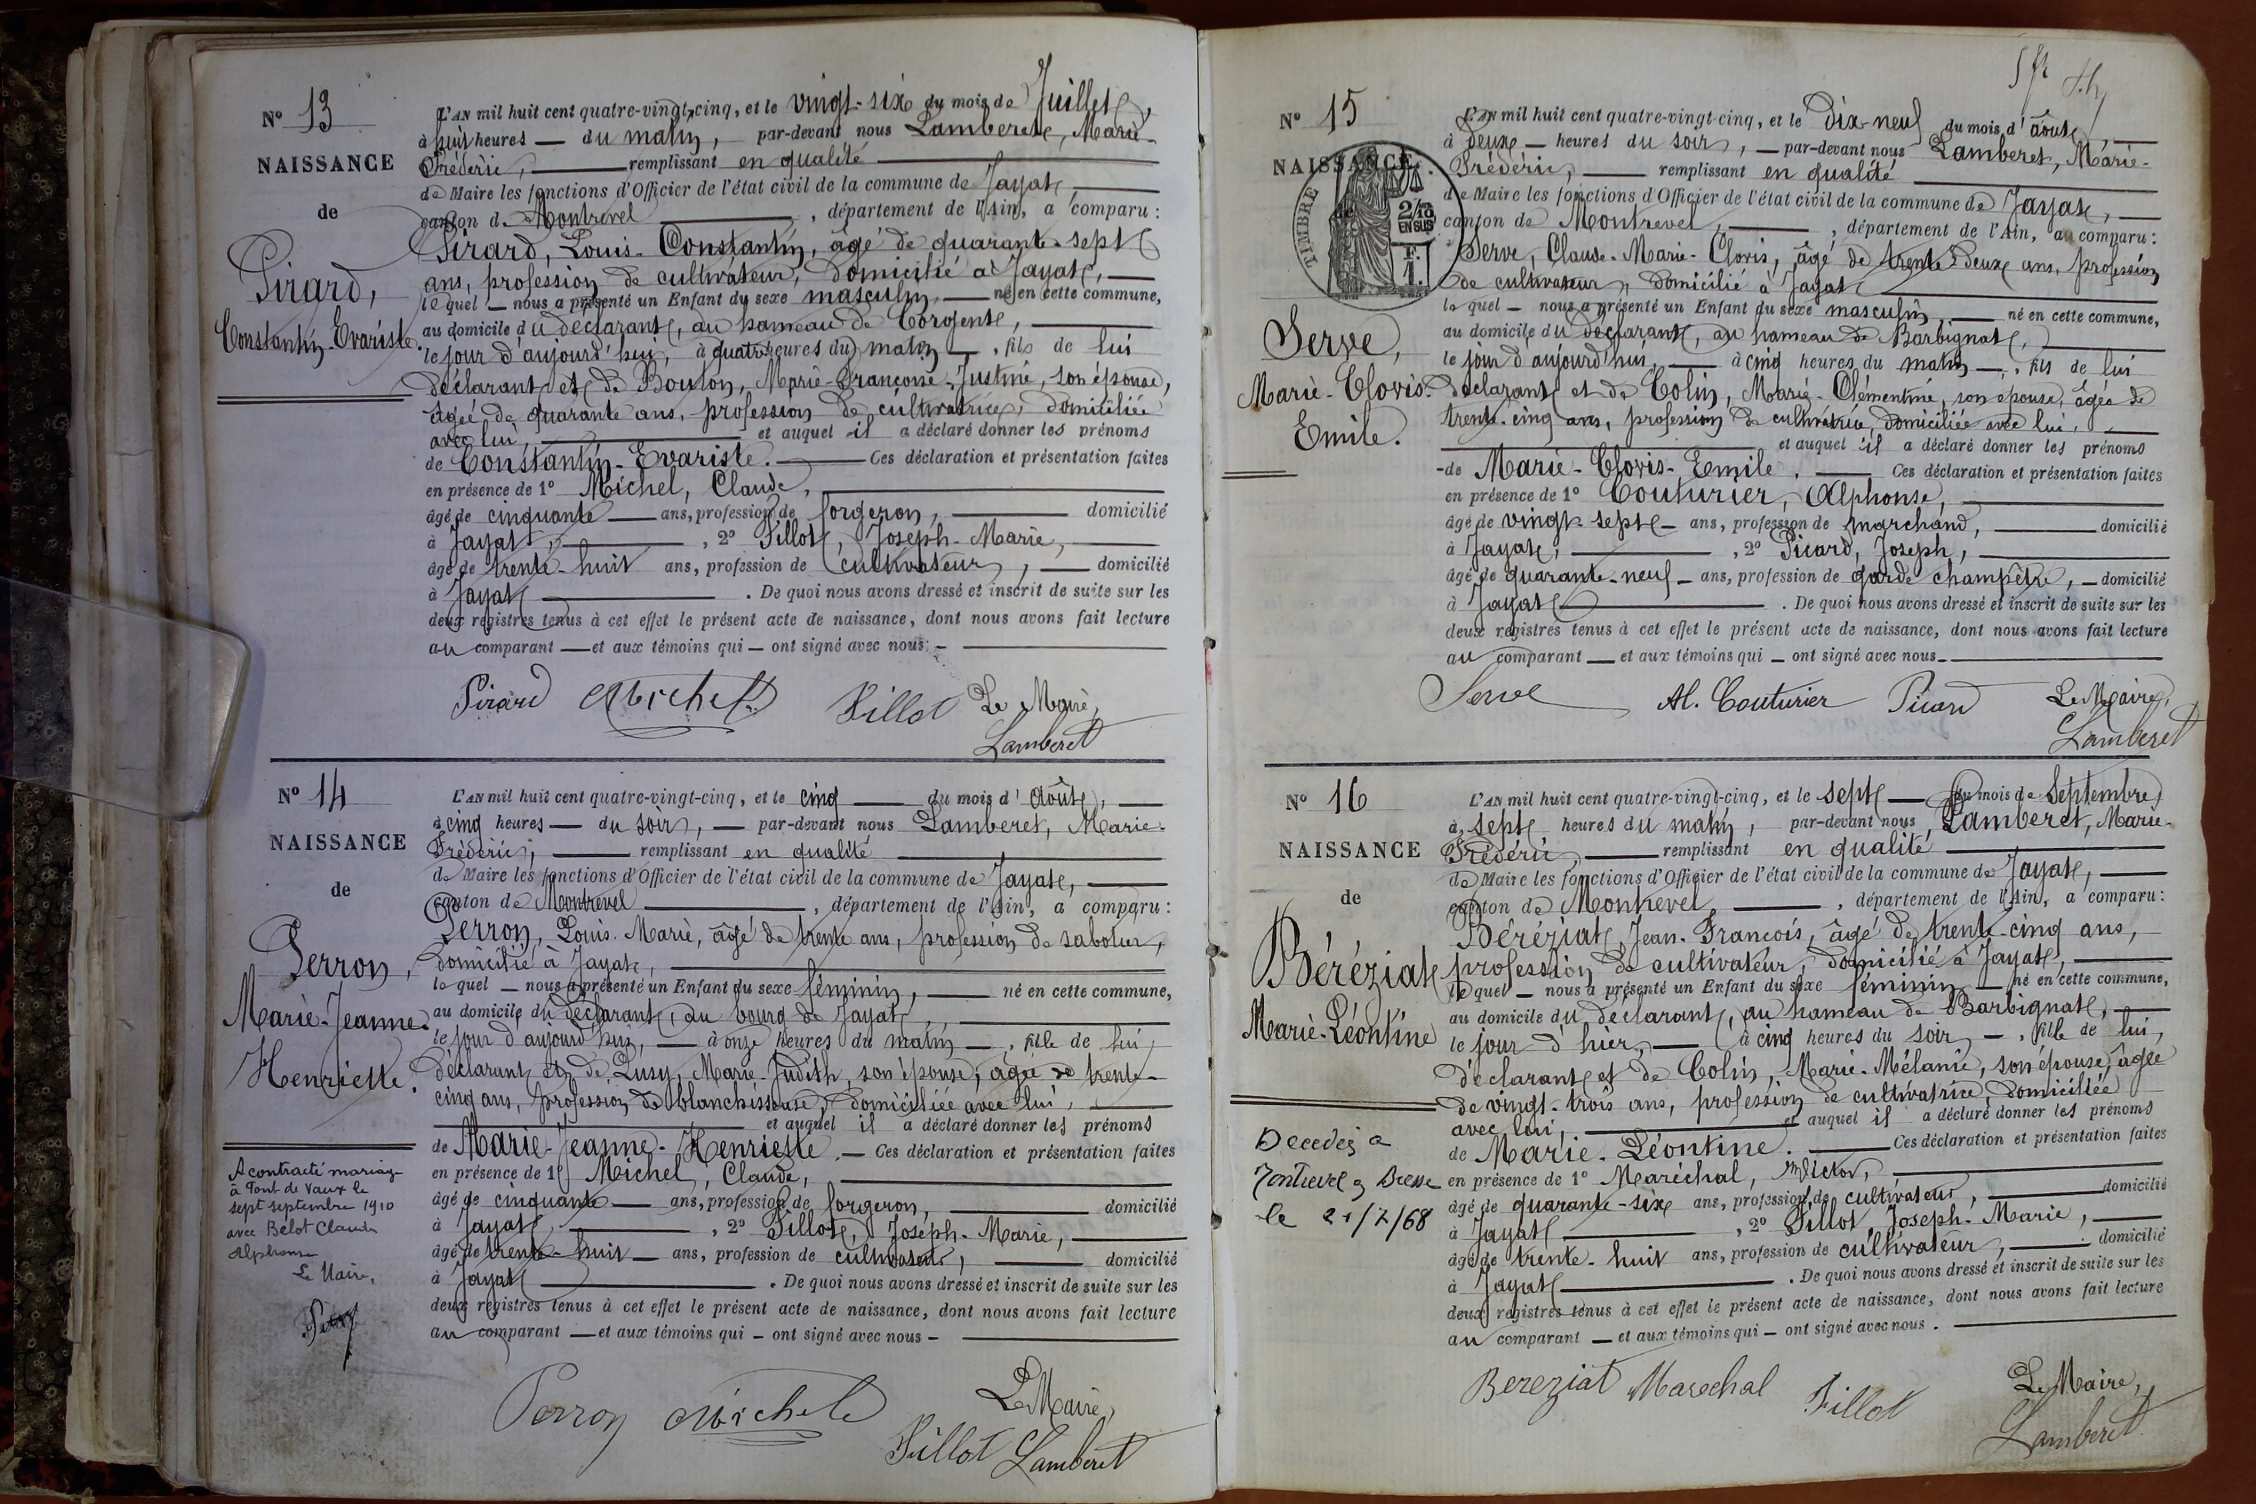 N° 13
NAISSANCE
de
Pirard,
Constantin-Evariste.
L'AN mil huit cent quatre-vingt-cinq, et le vingt-six du mois de Juillet,
à huit heures — du matin, par-devant nous Lamberet, Marie-
Frédéric, remplissant en qualité
de Maire les fonctions d'Officier de l'état civil de la commune de Jayat,
canton de Montrevel, département de l'Ain, a comparu :
Pirard, Louis-Constantin, âgé de quarante-sept
ans, profession de cultivateur, domicilié à Jayat,
le quel — nous a présenté un Enfant du sexe masculin, né en cette commune,
au domicile du déclarant, au hameau de Corgente,
le jour d'aujourd'hui, à quatre heures du matin —, fils de lui
déclarant et de Bouton, Marie-Françoise-Justine, son épouse,
âgée de quarante ans, profession de cultivatrice, domiciliée
avec lui, et auquel il a déclaré donner les prénoms
de Constantin-Evariste. Ces déclaration et présentation faites
en présence de 1° Michel, Claude,
âgé de cinquante — ans, profession de forgeron, domicilié
à Jayat, 2° Pillot, Joseph-Marie,
âgé de trente-huit ans, profession de cultivateur, — domicilié
à Jayat. De quoi nous avons dressé et inscrit de suite sur les
deux registres tenus à cet effet le présent acte de naissance, dont nous avons fait lecture
au comparant — et aux témoins qui — ont signé avec nous. —
Pirard Michel Pillot Le Maire,
Lamberet
N° 14
NAISSANCE
de
Perron,
Marie-Jeanne-
Henriette.
A contracté mariage
à Pont de Vaux le
sept septembre 1910
avec Belot Claude
Alphonse
Le Maire,
L'AN mil huit cent quatre-vingt-cinq, et le cinq du mois d'Août,
à cinq heures — du soir, — par-devant nous Lamberet, Marie-
Frédéric, remplissant en qualité
de Maire les fonctions d'Officier de l'état civil de la commune de Jayat,
canton de Montrevel, département de l'Ain, a comparu :
Perron, Louis-Marie, âgé de trente ans, profession de sabotier,
domicilié à Jayat,
le quel — nous a présenté un Enfant du sexe féminin, né en cette commune,
au domicile du déclarant, au bourg de Jayat,
le jour d'aujourd'hui, — à onze heures du matin —, fille de lui
déclarant et de Lusy, Marie-Judith, son épouse, âgée de trente-
cinq ans, profession de blanchisseuse, domiciliée avec lui,
et auquel il a déclaré donner les prénoms
de Marie-Jeanne-Henriette. — Ces déclaration et présentation faites
en présence de 1° Michel, Claude,
âgé de cinquante — ans, profession de forgeron, domicilié
à Jayat, 2° Pillot, Joseph-Marie,
âgé de trente-huit — ans, profession de cultivateur, domicilié
à Jayat. De quoi nous avons dressé et inscrit de suite sur les
deux registres tenus à cet effet le présent acte de naissance, dont nous avons fait lecture
au comparant — et aux témoins qui — ont signé avec nous —
Le Maire,
Perron Michel
Pillot Lamberet
N° 15
NAISSANCE
de
TIMBRE
2/10 EN SUS
F. 1.
Serve,
Marie-Clovis-
Emile.
L'AN mil huit cent quatre-vingt-cinq, et le dix-neuf du mois d'août,
à deux — heures du soir, — par-devant nous Lamberet, Marie-
Frédéric, remplissant en qualité
de Maire les fonctions d'Officier de l'état civil de la commune de Jayat,
canton de Montrevel, département de l'Ain, a comparu :
Serve, Claude-Marie-Clovis, âgé de trente-deux ans, profession
de cultivateur, domicilié à Jayat
le quel — nous a présenté un Enfant du sexe masculin, né en cette commune,
au domicile du déclarant, au hameau de Barbignat,
le jour d'aujourd'hui, à cinq heures du matin —, fils de lui
déclarant et de Colin, Marie-Clémentine, son épouse, âgée de
trente-cinq ans, profession de cultivatrice, domiciliée avec lui,
et auquel il a déclaré donner les prénoms
de Marie-Clovis-Emile. Ces déclaration et présentation faites
en présence de 1° Couturier, Alphonse,
âgé de vingt-sept — ans, profession de marchand, domicilié
à Jayat, 2° Picard, Joseph,
âgé de quarante-neuf — ans, profession de garde champêtre, — domicilié
à Jayat. De quoi nous avons dressé et inscrit de suite sur les
deux registres tenus à cet effet le présent acte de naissance, dont nous avons fait lecture
au comparant — et aux témoins qui — ont signé avec nous —
Serve Al. Couturier Picard Le Maire,
Lamberet
N° 16
NAISSANCE
de
Béréziat
Marie-Léontine
Decedée a
Montrevel en Bresse
le 21/7/68
L'AN mil huit cent quatre-vingt-cinq, et le sept — du mois de Septembre,
à sept heures du matin, par-devant nous, Lamberet, Marie-
Frédéric, remplissant en qualité
de Maire les fonctions d'Officier de l'état civil de la commune de Jayat,
canton de Montrevel, département de l'Ain, a comparu :
Béréziat, Jean-François, âgé de trente-cinq ans,
profession de cultivateur, domicilié à Jayat,
le quel — nous a présenté un Enfant du sexe féminin — né en cette commune,
au domicile du déclarant, au hameau de Barbignat,
le jour d'hier, — à cinq heures du soir —, fille de lui
déclarant et de Colin, Marie-Mélanie, son épouse, âgée
de vingt-trois ans, profession de cultivatrice, domiciliée
avec lui, et auquel il a déclaré donner les prénoms
de Marie-Léontine. Ces déclaration et présentation faites
en présence de 1° Maréchal, Victor,
âgé de quarante-six ans, profession de cultivateur, domicilié
à Jayat, 2° Pillot, Joseph-Marie,
âgé de trente-huit ans, profession de cultivateur, domicilié
à Jayat. De quoi nous avons dressé et inscrit de suite sur les
deux registres tenus à cet effet le présent acte de naissance, dont nous avons fait lecture
au comparant — et aux témoins qui — ont signé avec nous.
Bereziat Marechal Pillot Le Maire,
Lamberet